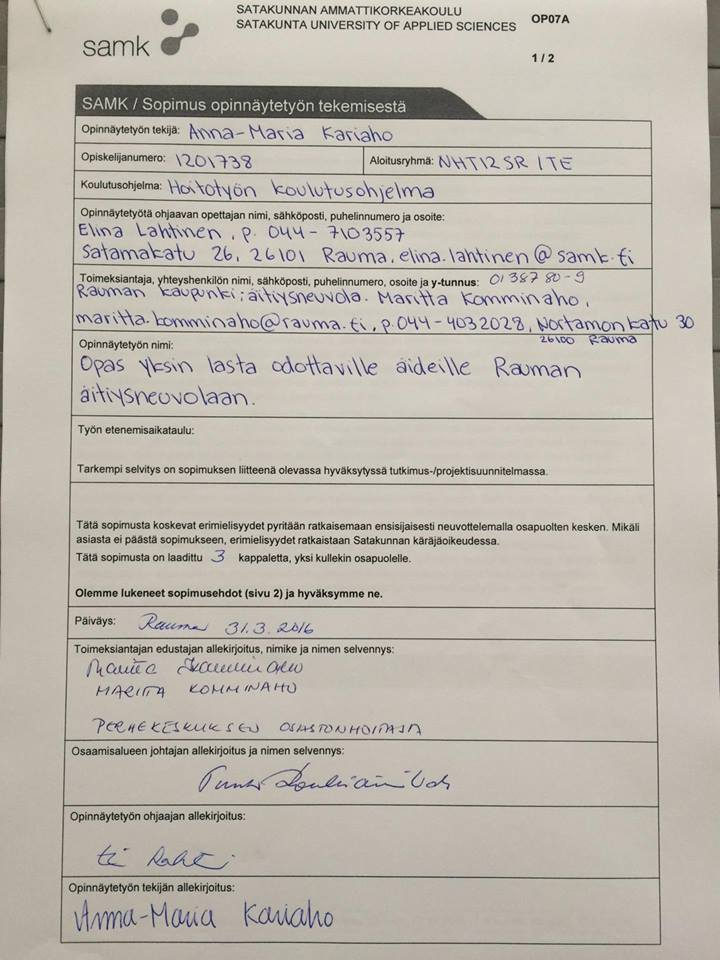 SATAKUNNAN AMMATTIKORKEAKOULU
SATAKUNTA UNIVERSITY OF APPLIED SCIENCES
OP07A
samk
1 / 2
SAMK / Sopimus opinnäytetyön tekemisestä
Opinnäytetyön tekijä: Anna-Maria Kariaho
Opiskelijanumero: 1201738 Aloitusryhmä: NHT12SR ITE
Koulutusohjelma: Hoitotyön koulutusohjelma
Opinnäytetyötä ohjaavan opettajan nimi, sähköposti, puhelinnumero ja osoite:
Elina Lahtinen, p. 044-7103557
Satamakatu 26, 26101 Rauma, elina.lahtinen@samk.fi
Toimeksiantaja, yhteyshenkilön nimi, sähköposti, puhelinnumero, osoite ja y-tunnus: 0138780-9
Rauman kaupunki; äitiysneuvola. Maritta Komminaho,
maritta.komminaho@rauma.fi, p.044-4032028, Nortamonkatu 30
26100 Rauma
Opinnäytetyön nimi:
Opas yksin lasta odottaville äideille Rauman
äitiysneuvolaan.
Työn etenemisaikataulu:
Tarkempi selvitys on sopimuksen liitteenä olevassa hyväksytyssä tutkimus-/projektisuunnitelmassa.
Tätä sopimusta koskevat erimielisyydet pyritään ratkaisemaan ensisijaisesti neuvottelemalla osapuolten kesken. Mikäli
asiasta ei päästä sopimukseen, erimielisyydet ratkaistaan Satakunnan käräjäoikeudessa.
Tätä sopimusta on laadittu 3 kappaletta, yksi kullekin osapuolelle.
Olemme lukeneet sopimusehdot (sivu 2) ja hyväksymme ne.
Päiväys: Rauma 31.3.2016
Toimeksiantajan edustajan allekirjoitus, nimike ja nimen selvennys:
Maritta Komminaho
MARITTA KOMMINAHO
PERHEKESKUKSEN OSASTONHOITAJA
Osaamisalueen johtajan allekirjoitus ja nimen selvennys:
Opinnäytetyön ohjaajan allekirjoitus:
Opinnäytetyön tekijän allekirjoitus:
Anna-Maria Kariaho